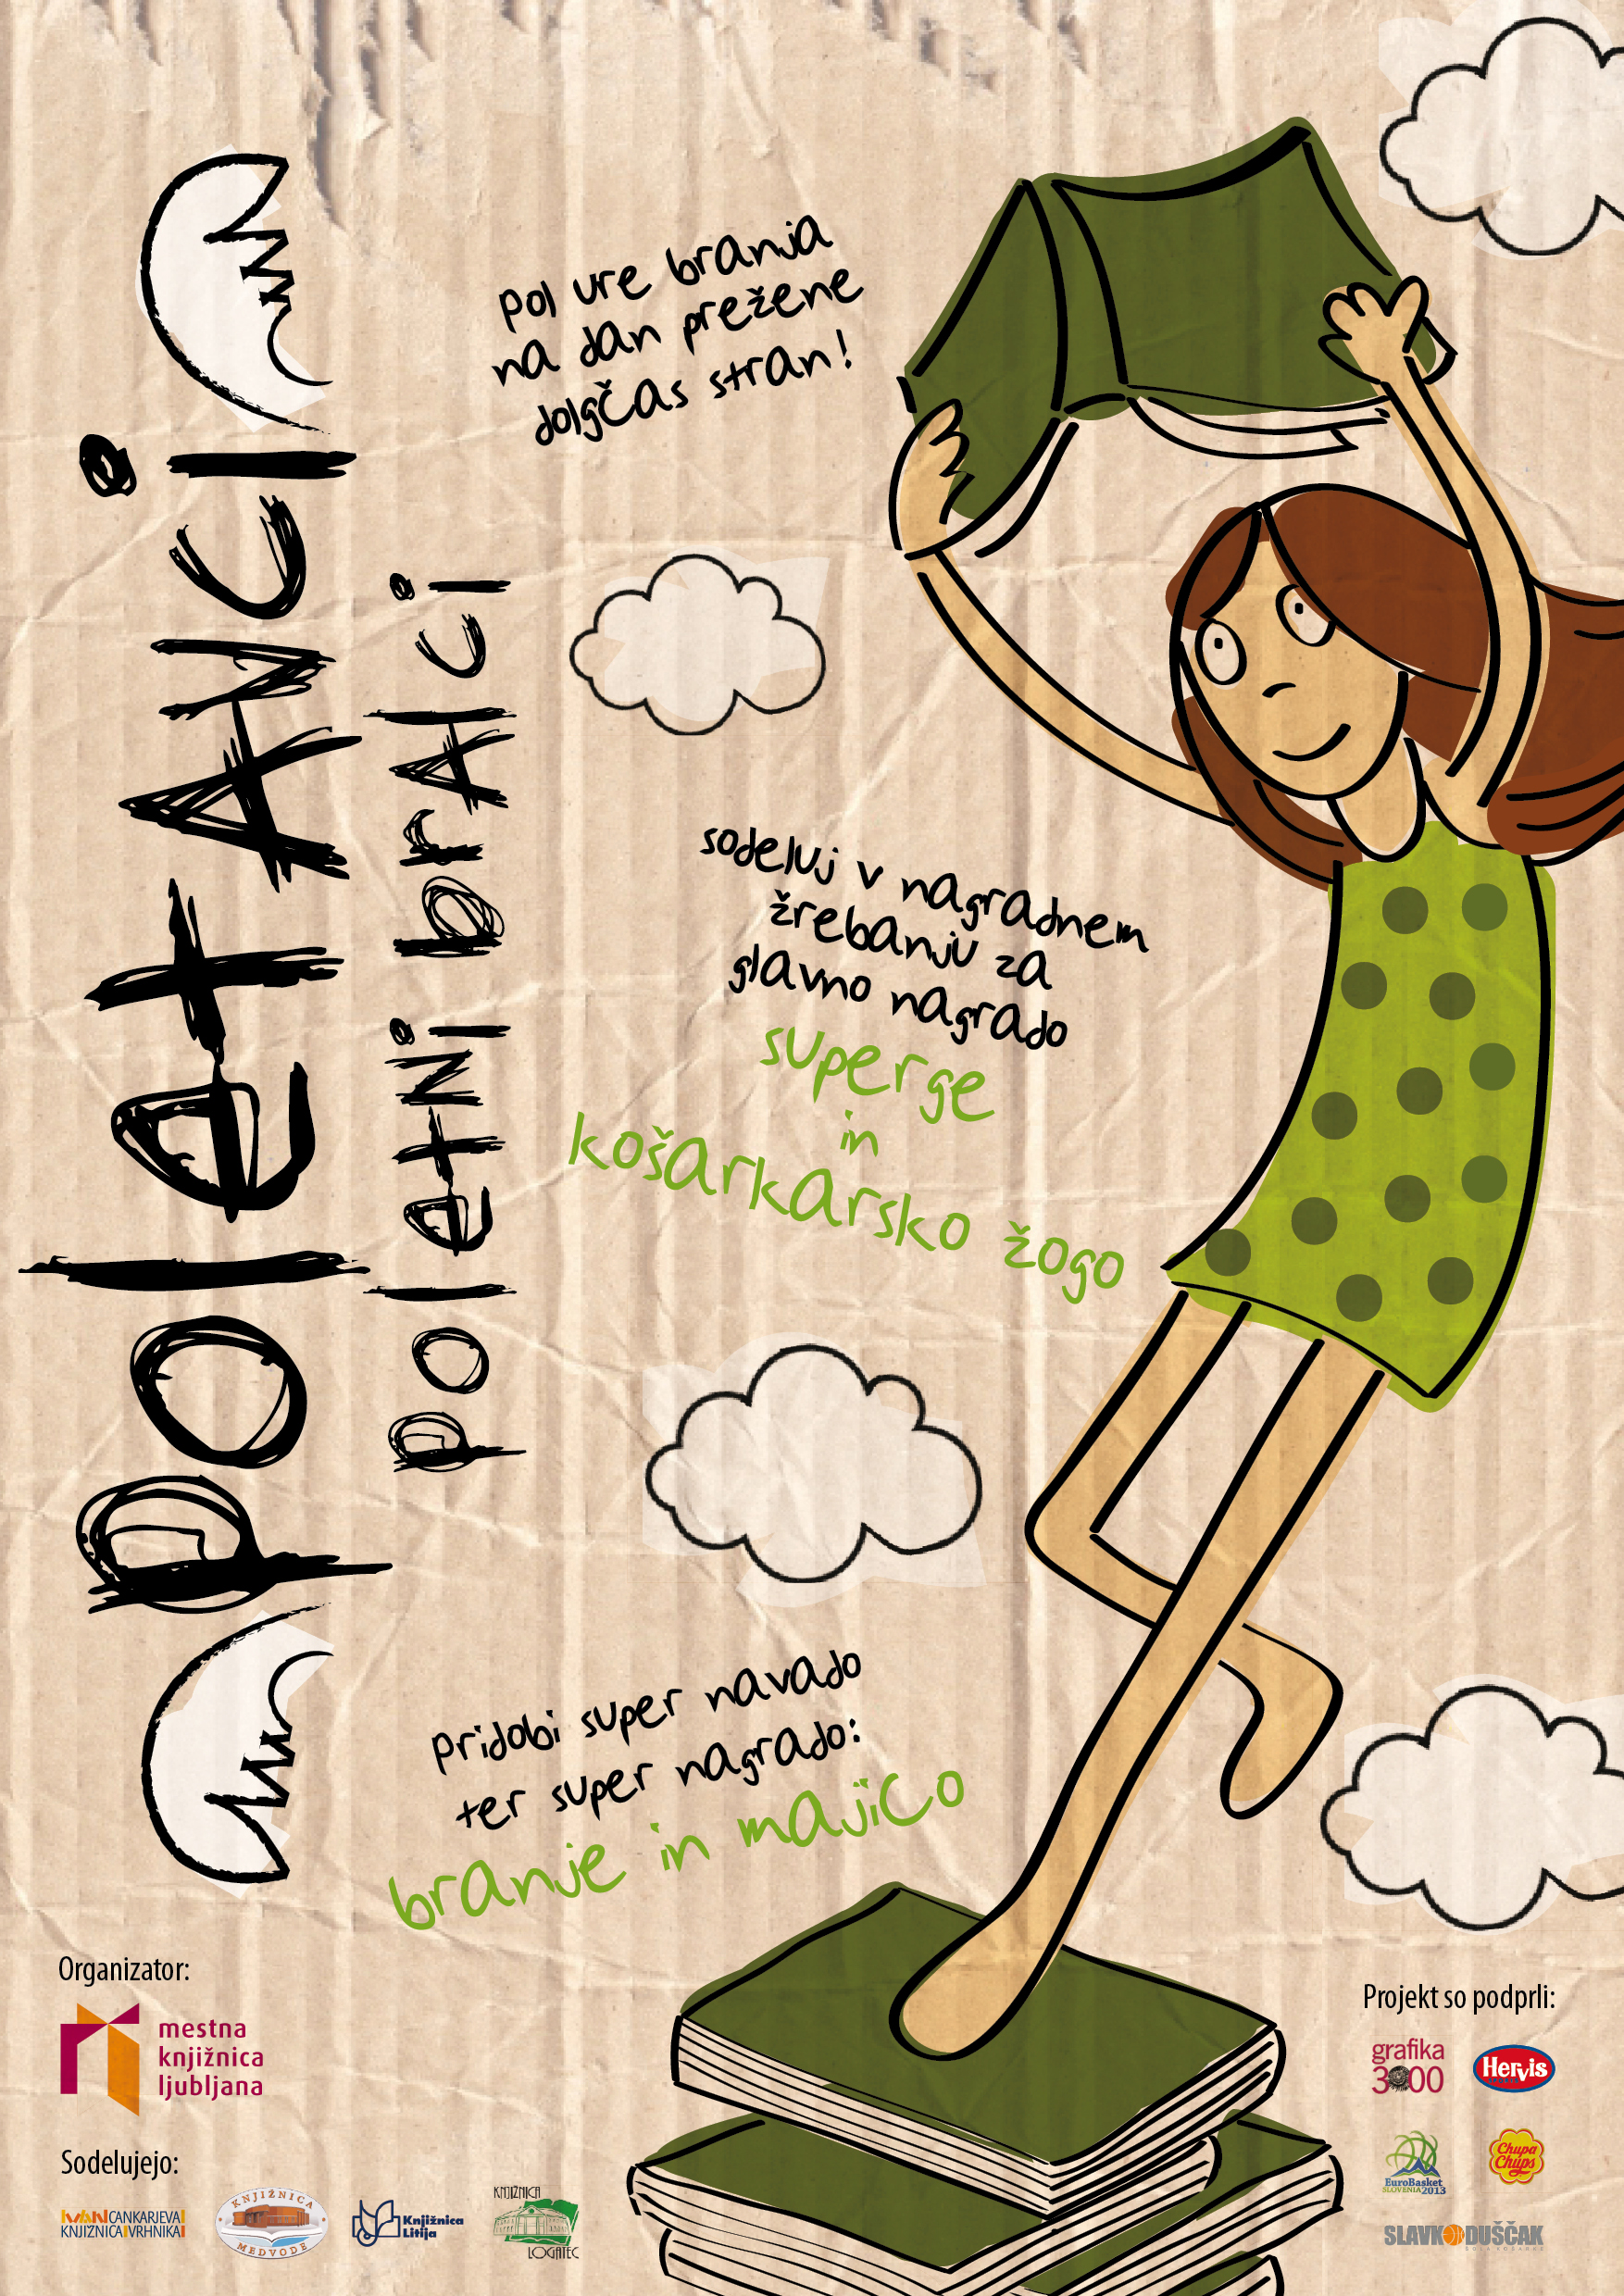 poletAvci
poletni brAlci
Pol ure branja
na dan prežene
dolgčas stran!
sodeluj v nagradnem
žrebanju za
glavno nagrado
superge
in
košarkarsko žogo
Pridobi super navado
ter super nagrado:
branje in majico
Organizator:
mestna
knjižnica
ljubljana
Sodelujejo:
IVAN CANKARJEVA
KNJIŽNICA VRHNIKA
KNJIŽNICA
MEDVODE
Knjižnica
Litija
KNJIŽNICA
LOGATEC
Projekt so podprli:
grafika
3000
Hervis
EuroBasket
SLOVENIA 2013
Chupa
Chups
SLAVKO DUŠČAK